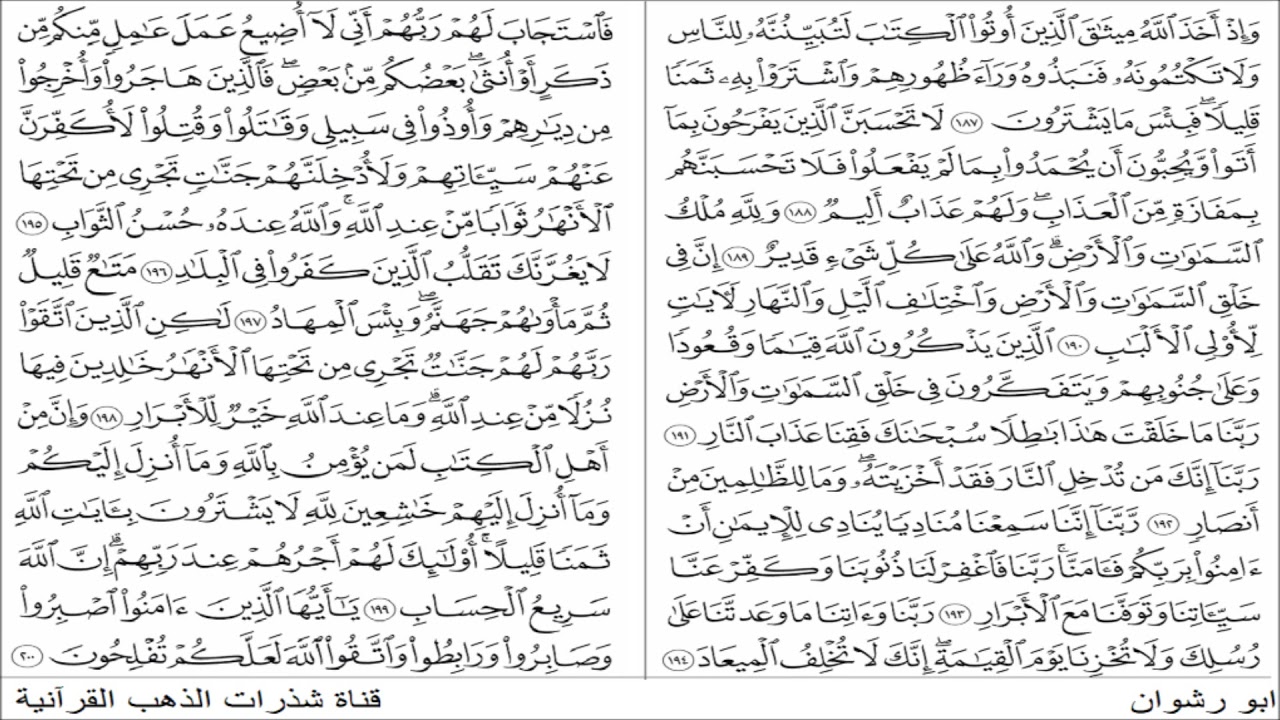 وَإِذْ أَخَذَ ٱللَّهُ مِيثَٰقَ ٱلَّذِينَ أُوتُوا۟ ٱلْكِتَٰبَ لَتُبَيِّنُنَّهُۥ لِلنَّاسِ
وَلَا تَكْتُمُونَهُۥ فَنَبَذُوهُ وَرَآءَ ظُهُورِهِمْ وَٱشْتَرَوْا۟ بِهِۦ ثَمَنًا
قَلِيلًا ۖ فَبِئْسَ مَا يَشْتَرُونَ ١٨٧ لَا تَحْسَبَنَّ ٱلَّذِينَ يَفْرَحُونَ بِمَآ
أَتَوا۟ وَّيُحِبُّونَ أَن يُحْمَدُوا۟ بِمَا لَمْ يَفْعَلُوا۟ فَلَا تَحْسَبَنَّهُم
بِمَفَازَةٍ مِّنَ ٱلْعَذَابِ ۖ وَلَهُمْ عَذَابٌ أَلِيمٌ ١٨٨ وَلِلَّهِ مُلْكُ
ٱلسَّمَٰوَٰتِ وَٱلْأَرْضِ ۗ وَٱللَّهُ عَلَىٰ كُلِّ شَىْءٍ قَدِيرٌ ١٨٩ إِنَّ فِى
خَلْقِ ٱلسَّمَٰوَٰتِ وَٱلْأَرْضِ وَٱخْتِلَٰفِ ٱلَّيْلِ وَٱلنَّهَارِ لَءَايَٰتٍ
لِّأُو۟لِى ٱلْأَلْبَٰبِ ١٩٠ ٱلَّذِينَ يَذْكُرُونَ ٱللَّهَ قِيَٰمًا وَقُعُودًا
وَعَلَىٰ جُنُوبِهِمْ وَيَتَفَكَّرُونَ فِى خَلْقِ ٱلسَّمَٰوَٰتِ وَٱلْأَرْضِ
رَبَّنَا مَا خَلَقْتَ هَٰذَا بَٰطِلًا سُبْحَٰنَكَ فَقِنَا عَذَابَ ٱلنَّارِ ١٩١
رَبَّنَآ إِنَّكَ مَن تُدْخِلِ ٱلنَّارَ فَقَدْ أَخْزَيْتَهُۥ ۖ وَمَا لِلظَّٰلِمِينَ مِنْ
أَنصَارٍ ١٩٢ رَّبَّنَآ إِنَّنَا سَمِعْنَا مُنَادِيًا يُنَادِى لِلْإِيمَٰنِ أَنْ
ءَامِنُوا۟ بِرَبِّكُمْ فَـَٔامَنَّا ۚ رَبَّنَا فَٱغْفِرْ لَنَا ذُنُوبَنَا وَكَفِّرْ عَنَّا
سَيِّـَٔاتِنَا وَتَوَفَّنَا مَعَ ٱلْأَبْرَارِ ١٩٣ رَبَّنَا وَءَاتِنَا مَا وَعَدتَّنَا عَلَىٰ
رُسُلِكَ وَلَا تُخْزِنَا يَوْمَ ٱلْقِيَٰمَةِ ۗ إِنَّكَ لَا تُخْلِفُ ٱلْمِيعَادَ ١٩٤
فَٱسْتَجَابَ لَهُمْ رَبُّهُمْ أَنِّى لَآ أُضِيعُ عَمَلَ عَٰمِلٍ مِّنكُم مِّن
ذَكَرٍ أَوْ أُنثَىٰ ۖ بَعْضُكُم مِّنۢ بَعْضٍ ۖ فَٱلَّذِينَ هَاجَرُوا۟ وَأُخْرِجُوا۟
مِن دِيَٰرِهِمْ وَأُوذُوا۟ فِى سَبِيلِى وَقَٰتَلُوا۟ وَقُتِلُوا۟ لَأُكَفِّرَنَّ
عَنْهُمْ سَيِّـَٔاتِهِمْ وَلَأُدْخِلَنَّهُمْ جَنَّٰتٍ تَجْرِى مِن تَحْتِهَا
ٱلْأَنْهَٰرُ ثَوَابًا مِّنْ عِندِ ٱللَّهِ ۗ وَٱللَّهُ عِندَهُۥ حُسْنُ ٱلثَّوَابِ ١٩٥
لَا يَغُرَّنَّكَ تَقَلُّبُ ٱلَّذِينَ كَفَرُوا۟ فِى ٱلْبِلَٰدِ ١٩٦ مَتَٰعٌ قَلِيلٌ
ثُمَّ مَأْوَىٰهُمْ جَهَنَّمُ ۚ وَبِئْسَ ٱلْمِهَادُ ١٩٧ لَٰكِنِ ٱلَّذِينَ ٱتَّقَوْا۟
رَبَّهُمْ لَهُمْ جَنَّٰتٌ تَجْرِى مِن تَحْتِهَا ٱلْأَنْهَٰرُ خَٰلِدِينَ فِيهَا
نُزُلًا مِّنْ عِندِ ٱللَّهِ ۗ وَمَا عِندَ ٱللَّهِ خَيْرٌ لِّلْأَبْرَارِ ١٩٨ وَإِنَّ مِنْ
أَهْلِ ٱلْكِتَٰبِ لَمَن يُؤْمِنُ بِٱللَّهِ وَمَآ أُنزِلَ إِلَيْكُمْ
وَمَآ أُنزِلَ إِلَيْهِمْ خَٰشِعِينَ لِلَّهِ لَا يَشْتَرُونَ بِـَٔايَٰتِ ٱللَّهِ
ثَمَنًا قَلِيلًا ۗ أُو۟لَٰٓئِكَ لَهُمْ أَجْرُهُمْ عِندَ رَبِّهِمْ ۗ إِنَّ ٱللَّهَ
سَرِيعُ ٱلْحِسَابِ ١٩٩ يَٰٓأَيُّهَا ٱلَّذِينَ ءَامَنُوا۟ ٱصْبِرُوا۟
وَصَابِرُوا۟ وَرَابِطُوا۟ وَٱتَّقُوا۟ ٱللَّهَ لَعَلَّكُمْ تُفْلِحُونَ ٢٠٠
ابو رشوان
قناة شذرات الذهب القرآنية